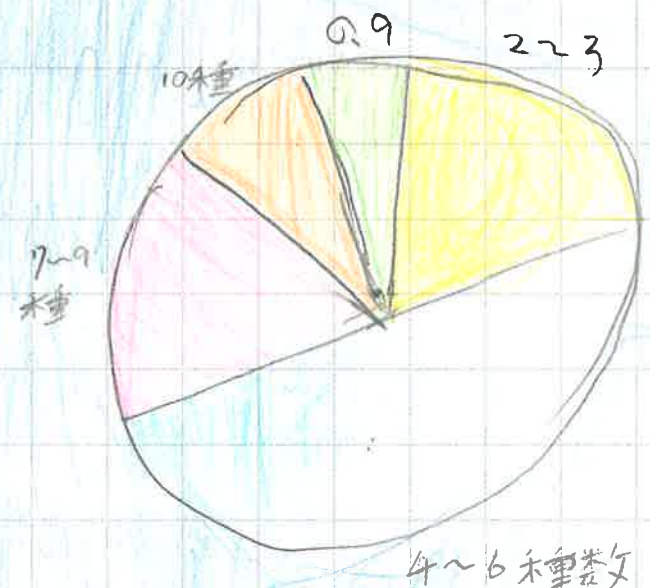 0.9
2〜3
10種
7〜9
種
4〜6種数